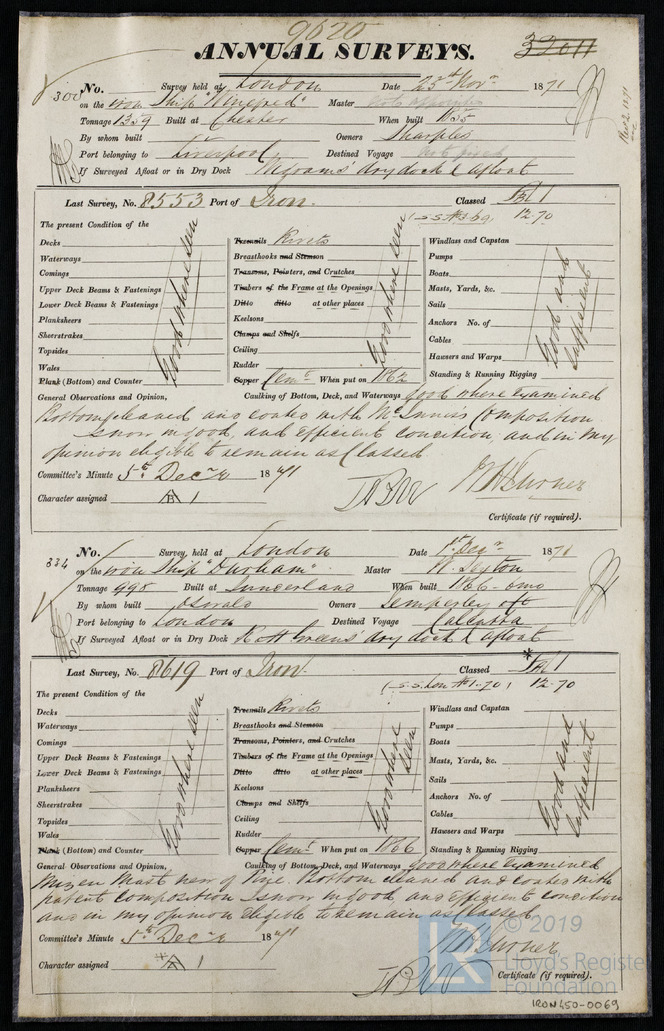 9620
ANNUAL SURVEYS. 32011
300 No. Survey held at London Date 23rd Novr 1871
on the iron Ship "Winefred" Master not appointed
Tonnage 1359 Built at Chester When built 1855
By whom built Owners Sharples
Port belonging to Liverpool Destined Voyage not fixed
If Surveyed Afloat or in Dry Dock Wigrams' dry dock & afloat
Last Survey, No. 8553 Port of Iron. Classed 1
12.70
The present Condition of the
Decks Treenails Rivets Windlass and Capstan
Waterways Breasthooks and Stemson Pumps
Comings Transoms, Pointers, and Crutches Boats
Upper Deck Beams & Fastenings Timbers of the Frame at the Openings Masts, Yards, &c.
Lower Deck Beams & Fastenings Ditto ditto at other places Sails
Planksheers Keelsons Anchors No. of
Sheerstrakes Clamps and Shelfs Cables
Topsides Ceiling Hawsers and Warps
Wales Rudder Standing & Running Rigging
Good where seen Good where seen Good and Sufficient
Plank (Bottom) and Counter Copper Cemt When put on 1862
General Observations and Opinion, Caulking of Bottom, Deck, and Waterways good where Examined
Bottom cleaned and coated with McInnes Composition
is now in good, and Efficient condition, and in my
opinion eligible to remain as Classed
Committee's Minute 5th Decr 1871
Character assigned A 1
Certificate (if required).
334 No. Survey held at London Date 1st Decr 1871
on the iron Ship "Durham" Master W. Sexton
Tonnage 998 Built at Sunderland When built 1866-
By whom built Oswald Owners Temperley & Co
Port belonging to London Destined Voyage Calcutta
If Surveyed Afloat or in Dry Dock dry dock & afloat
Last Survey, No. 8619 Port of Iron. Classed 1
(S.S. Lon No 1-70) 12.70
The present Condition of the
Decks Treenails Rivets Windlass and Capstan
Waterways Breasthooks and Stemson Pumps
Comings Transoms, Pointers, and Crutches Boats
Upper Deck Beams & Fastenings Timbers of the Frame at the Openings Masts, Yards, &c.
Lower Deck Beams & Fastenings Ditto ditto at other places Sails
Planksheers Keelsons Anchors No. of
Sheerstrakes Clamps and Shelfs Cables
Topsides Ceiling Hawsers and Warps
Wales Rudder
Good where seen Good where seen Good and Sufficient
Plank (Bottom) and Counter Copper Cemt When put on 1866 Standing & Running Rigging
General Observations and Opinion, Caulking of Bottom, Deck, and Waterways good where Examined
Mizen Mast new of Pine. Bottom cleaned and coated with
patent composition is now in good, and Efficient condition
and in my opinion Eligible to remain as Classed
© 2019
Committee's Minute 5th Decr 1871
Lloyd's Register
Character assigned A 1
Certificate (if required).
Foundation
IRON450-0069